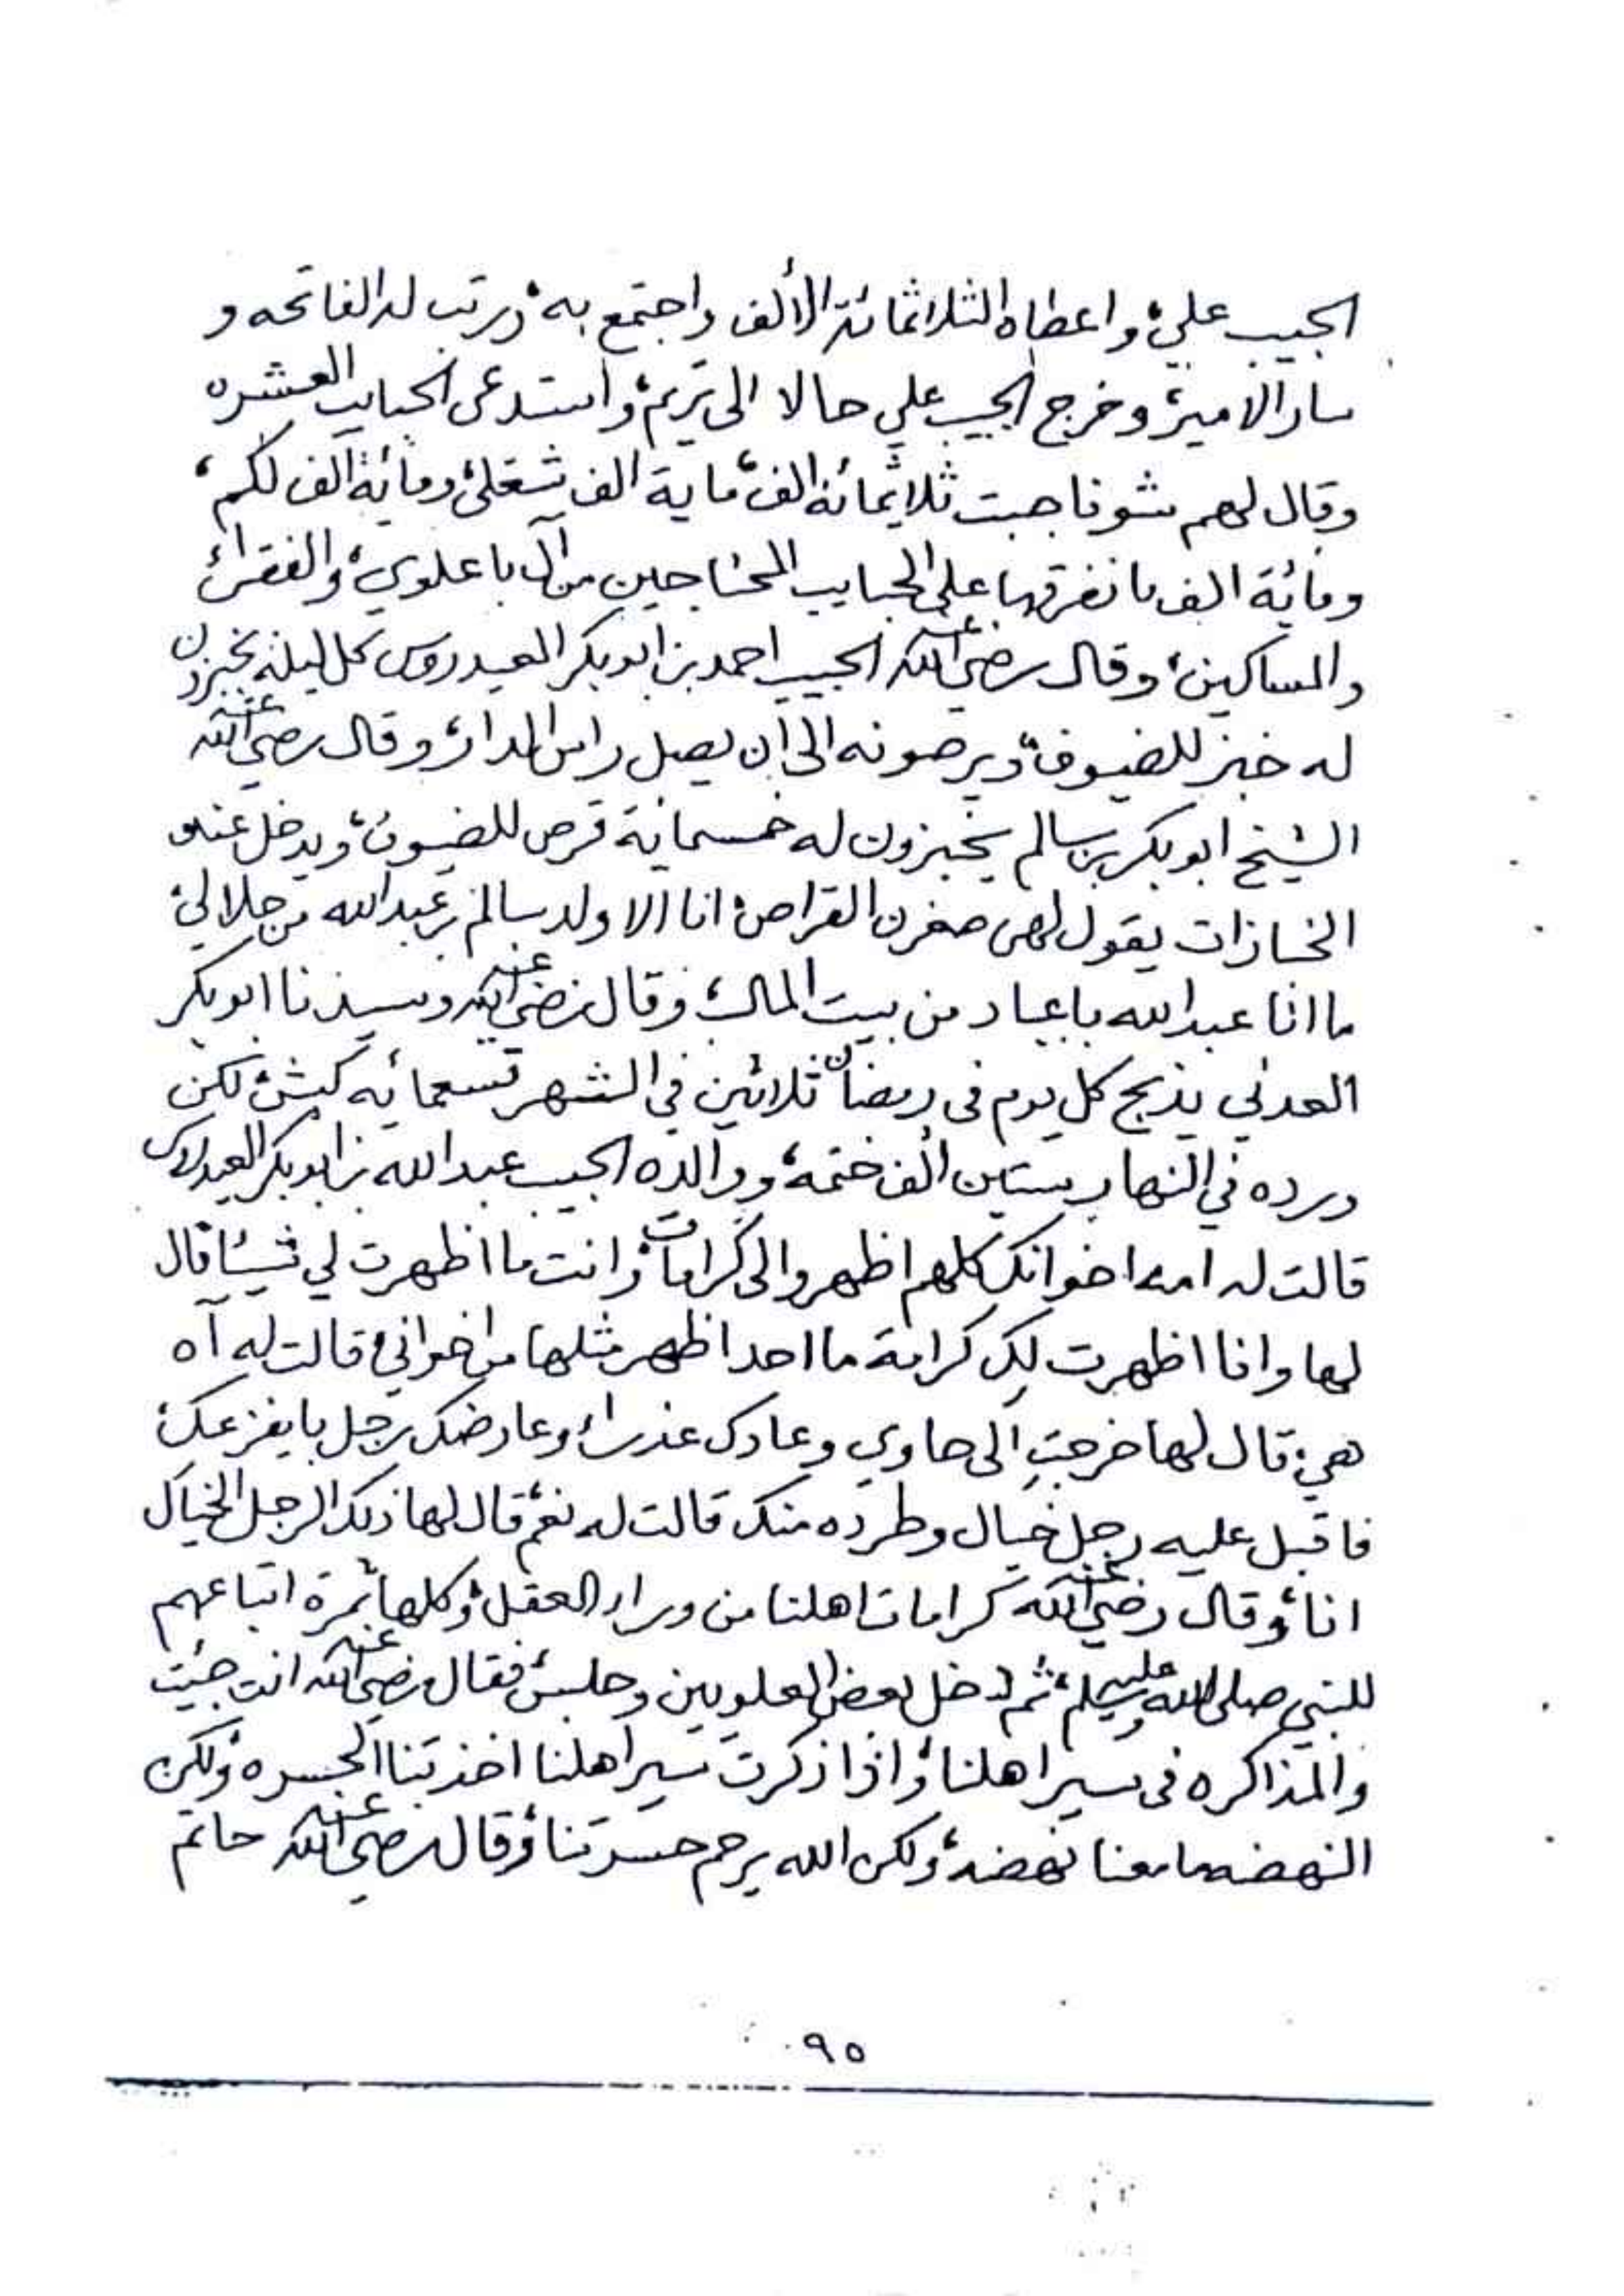 الحبيب علي، واعطاه الثلاثمائة الألف واجتمع به، ورتب له الفاتحه و
سار الامير، وخرج الحبيب علي حالا الى تريم، واستدعى الحبايب العشره
وقال لهم شوفنا جبت ثلاثمائة الف، ماية الف شغلي، ومائة ألف لكم،
ومائة الف بانفرقها على الحبايب المحتاجين من آل باعلوي، والفقراء
والمساكين، وقال رضي الله عنه الحبيب احمد بن ابوبكر العيدروس كل ليلة يخبزون
له خبز للضيوف، ويرصونه الى ان يصل راس المدار، وقال رضي الله عنه
الشيخ ابوبكر بن سالم يخبزون له خمسماية قرص للضيوف، ويدخل عند
الخبازات يقول لهن صغرن القراص، انا الا ولد سالم بن عبدالله من حلالي،
ما انا عبدالله باعباد من بيت المال، وقال رضي الله عنه وسيدنا ابوبكر
العدني يذبح كل يوم في رمضان ثلاثين في الشهر تسعمائه كبش، لكن
ورده في النهار ستين ألف ختمة، ووالده الحبيب عبدالله بن ابوبكر العيدروس
قالت له امه اخوانك كلهم اظهروا لي كرامات، وانت ما اظهرت لي شيئا، قال
لها وانا اظهرت لك كرامة ما احد اظهر مثلها من اخواني، قالت له آه
هي، قال لها خرجتِ الى حاوي وعادك عذراء وعارضك رجل با يفزعك،
فاقبل عليه رجل خيال وطرده منك قالت له نعم، قال لها ذلك الرجل الخيال
انا، وقال رضي الله عنه كرامات اهلنا من وراء العقل، وكلها ثمرة اتباعهم
للنبي صلى الله عليه وسلم، ثم دخل بعض العلويين وجلس، فقال رضي الله عنه انت جئت
والمذاكره في سير اهلنا، واذا ذكرت سير اهلنا اخذتنا الحسره، ولكن
النهضه ما معنا نهضة، ولكن الله يرحم حسرتنا، وقال رضي الله عنه حاتم
٩٥